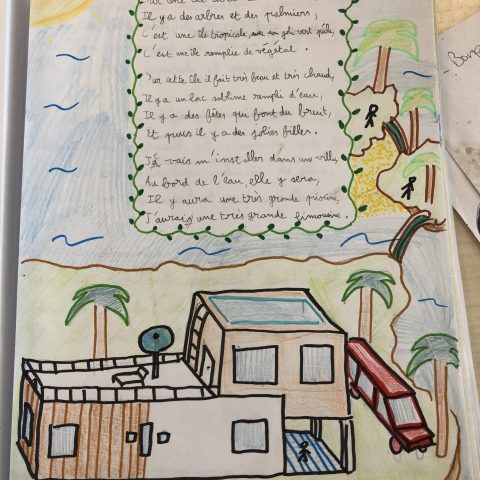 Il y a des arbres et des palmiers,
C'est une île tropicale, avec son joli vert pâle,
C'est une île remplie de végétal.
Sur cette île il fait très beau et très chaud,
Il y a un lac sublime rempli d'eau,
Il y a des fêtes qui font du bruit,
Et puis il y a des jolies filles.
Je vais m'installer dans une villa,
Au bord de l'eau, elle y sera,
Il y aura une très grande piscine,
J'aurais une très grande limousine.